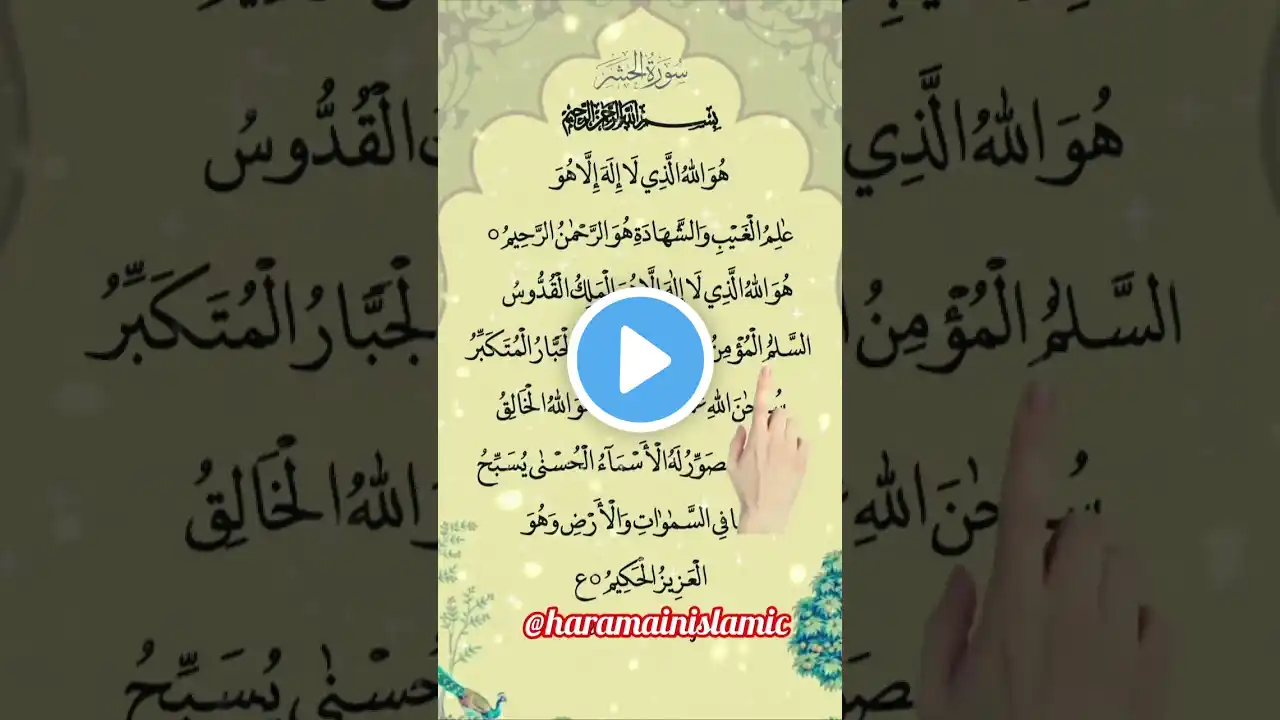 سُورَةُ الحَشَر
بِسْمِ اللهِ الرَّحْمٰنِ الرَّحِيْمِ
هُوَ اللهُ الَّذِي لَا إِلٰهَ إِلَّا هُوَ
عٰلِمُ الْغَيْبِ وَالشَّهَادَةِ هُوَ الرَّحْمٰنُ الرَّحِيمُ ○
هُوَ اللهُ الَّذِي لَا الْمَلِكُ الْقُدُّوسُ
السَّلٰمُ الْمُؤْمِنُ الْجَبَّارُ الْمُتَكَبِّرُ
اللهِ اللهُ الْخَالِقُ
لَهُ الْأَسْمَآءُ الْحُسْنٰى يُسَبِّحُ
فِي السَّمٰوٰتِ وَالْأَرْضِ وَهُوَ
الْعَزِيزُ الْحَكِيمُ ○ ع
@haramainislamic